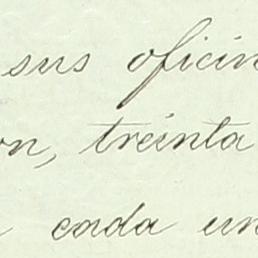 sus oficin
on, treinta
cada un